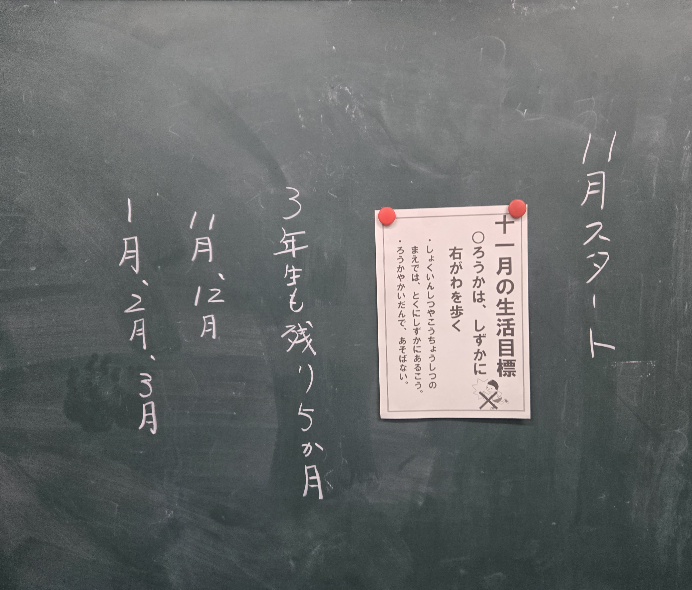 11月スタート
十一月の生活目標
○ろうかは、しずかに
右がわを歩く
・しょくいんしつやこうちょうしつの
まえでは、とくにしずかにあるこう。
・ろうかやかいだんで、あそばない。
3年生も残り5か月
11月、12月
1月、2月、3月